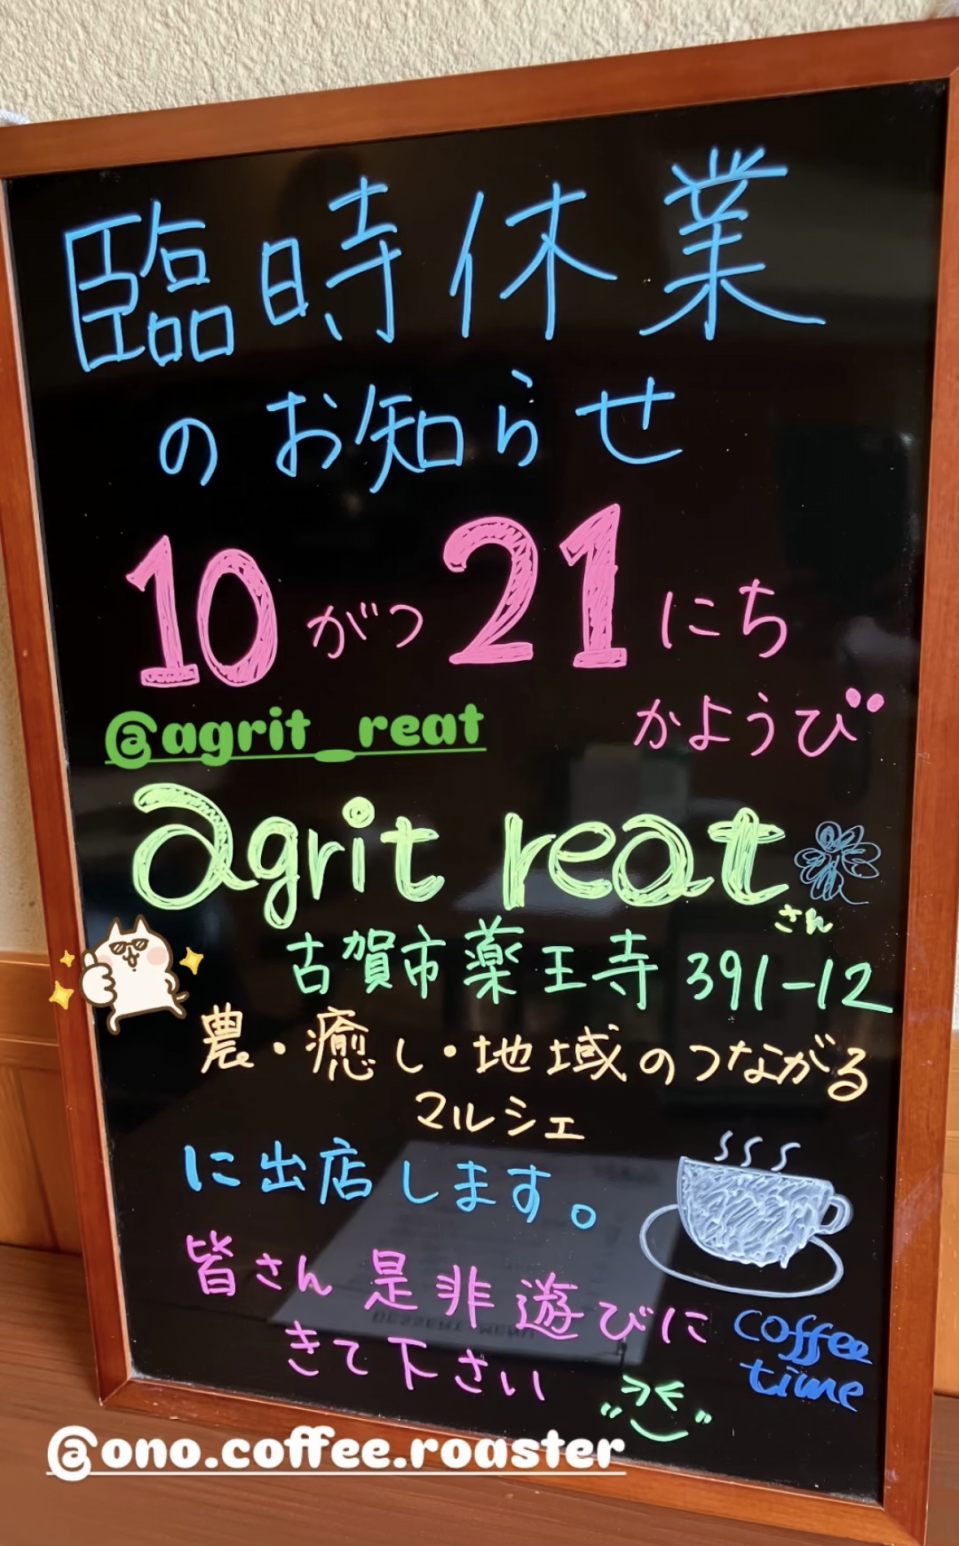 臨時休業
のお知らせ
10がつ21にち
かようび
@agrit_reat
agrit reat
さん
古賀市薬王寺391-12
農・癒し・地域のつながる
マルシェ
に出店します。
皆さん是非遊びに
きて下さい
coffee
time
@ono.coffee.roaster